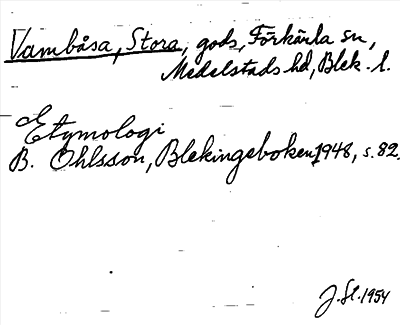 Vambåsa, Stora, gods, Förkärla sn,
Medelstads hd, Blek. l.
Etymologi
B. Ohlsson, Blekingeboken 1948, s. 82.
J. Sl. 1954